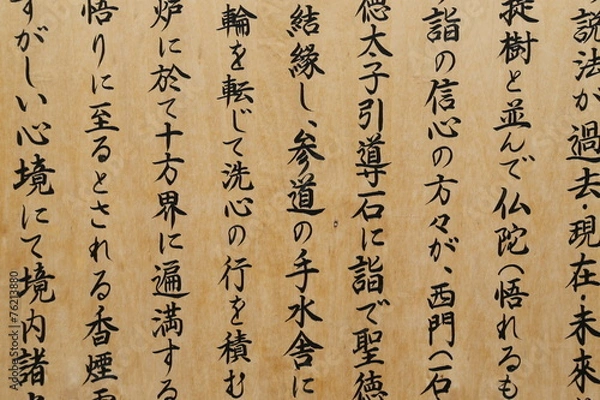 説法が過去・現在・未来
提樹と並んで仏陀(悟れるも
詣の信心の方々が、西門(石
徳太子引導石に詣で聖徳
結縁し、参道の手水舎に
輪を転じて洗心の行を積む
炉に於て十方界に遍満する
悟りに至るとされる香煙
すがしい心境にて境内諸
Adobe Stock | #76213880